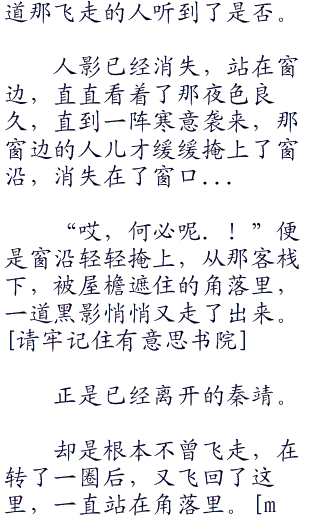 道那飞走的人听到了是否。
人影已经消失，站在窗
边，直直看着了那夜色良
久，直到一阵寒意袭来，那
窗边的人儿才缓缓掩上了窗
沿，消失在了窗口...
“哎，何必呢．！”便
是窗沿轻轻掩上，从那客栈
下，被屋檐遮住的角落里，
一道黑影悄悄又走了出来。
[请牢记住有意思书院]
正是已经离开的秦靖。
却是根本不曾飞走，在
转了一圈后，又飞回了这
里，一直站在角落里。[m